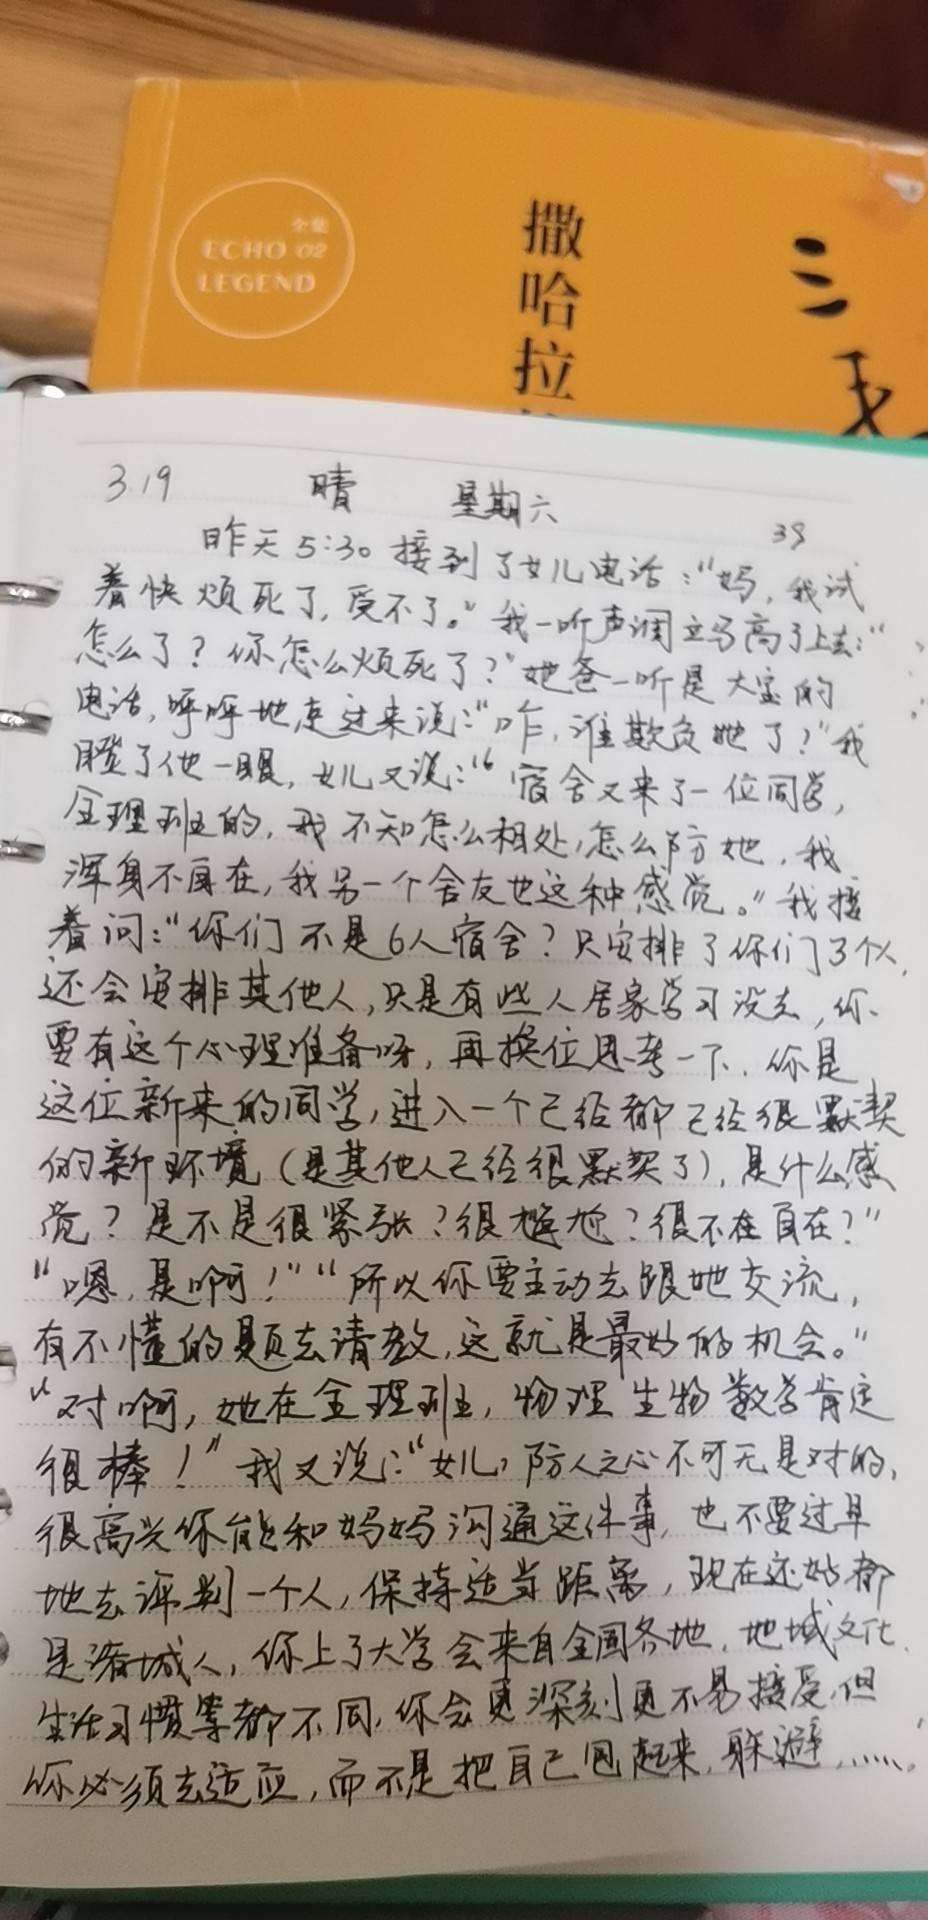 全集
ECHO 02
LEGEND
撒哈拉
三
3.19 晴 星期六
39
昨天5:30接到了女儿电话:“妈,我试
着快烦死了,受不了。”我一听声调立马高了上去:“
怎么了?你怎么烦死了?”她爸一听是大宝的
电话,呼呼地走过来说:“咋,谁欺负她了?”我
瞪了他一眼,女儿又说:“宿舍又来了一位同学,
全理班的,我不知怎么相处,怎么防她,我
浑身不自在,我另一个舍友也这种感觉。”我接
着问:“你们不是6人宿舍?只安排了你们3个人,
还会安排其他人,只是有些人居家学习没去,你
要有这个心理准备呀,再换位思考一下,你是
这位新来的同学,进入一个已经都已经很默契
的新环境(是其他人已经很默契了),是什么感
觉?是不是很紧张?很尴尬?很不在自在?”
“嗯,是啊!”“所以你要主动去跟她交流,
有不懂的题去请教,这就是最好的机会。”
“对啊,她在全理班,物理生物数学肯定
很棒!”我又说:“女儿,防人之心不可无是对的,
很高兴你能和妈妈沟通这件事,也不要过早
地去评判一个人,保持适当距离,现在还好都
是诸城人,你上了大学会来自全国各地,地域文化、
生活习惯等都不同,你会更深刻更不易接受,但
你必须去适应,而不是把自己包起来,躲避……